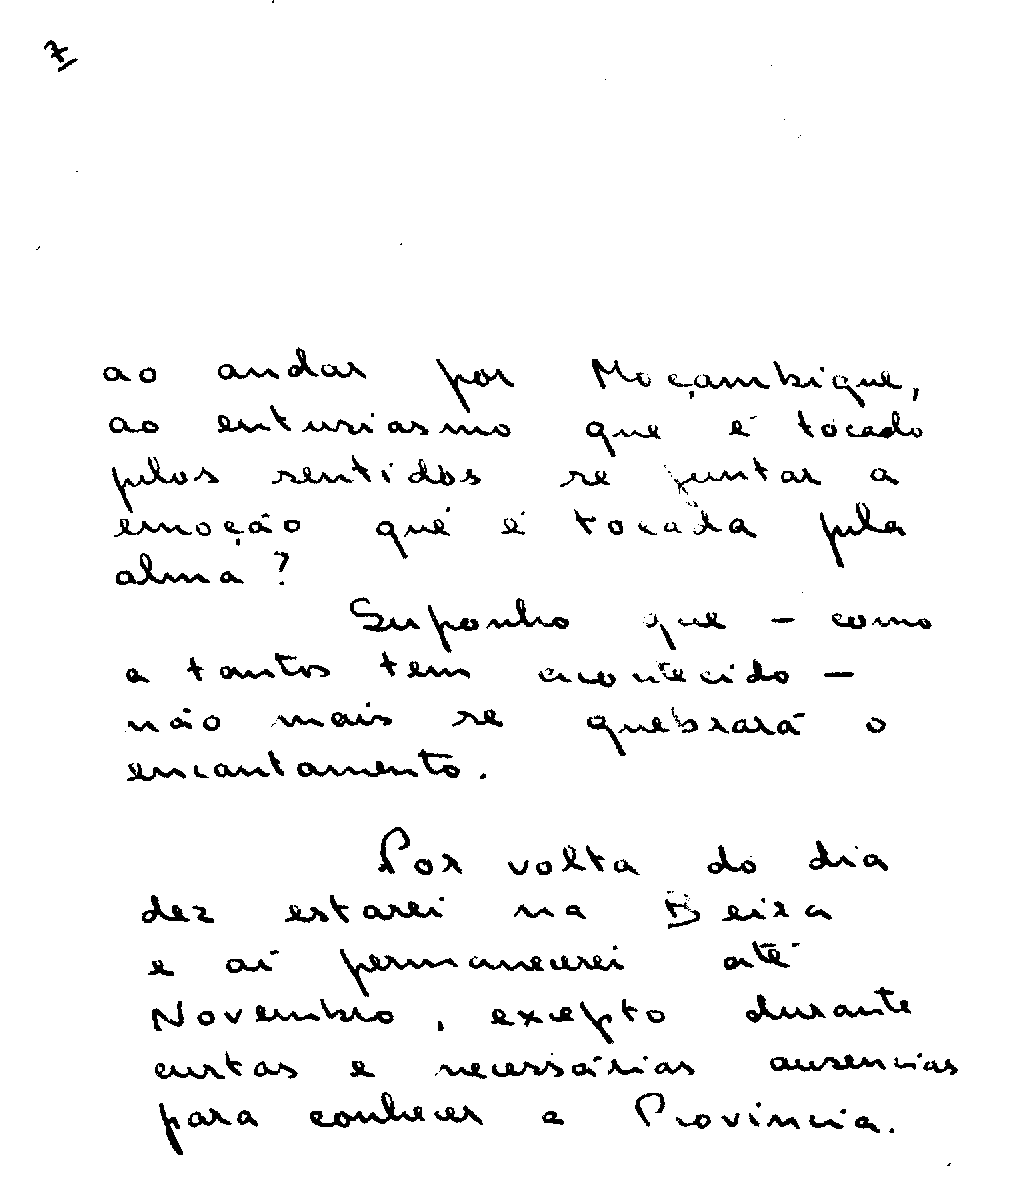 7
ao andar por Moçambique,
ao entusiasmo que é tocado
pelos sentidos se juntar a
emoção que é tocada pela
alma?
Suponho que - como
a tantos tem acontecido -
não mais se quebrará o
encantamento.
Por volta do dia
dez estarei na Beira
e aí permanecerei até
Novembro, excepto durante
curtas e necessárias ausencias
para conhecer a Provincia.